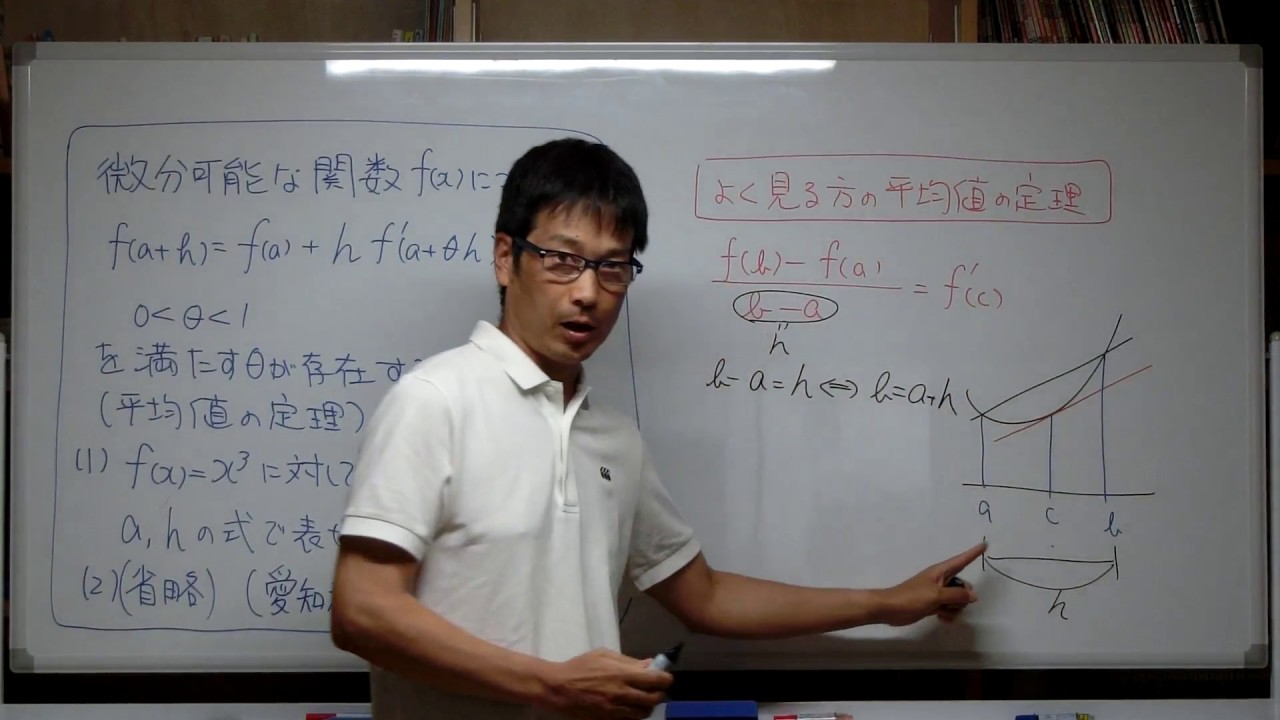 微分可能な関数f(x)に
f(a+h)=f(a)+hf'(a+θh)
0<θ<1
を満たすθが存在す
(平均値の定理)
(1) f(x)=x³に対して
a,hの式で表せ
(2)(省略) (愛知
よく見る方の平均値の定理
f(b)-f(a)
b-a
= f'(c)
h
b-a=h⇔b=a+h
a c b
h